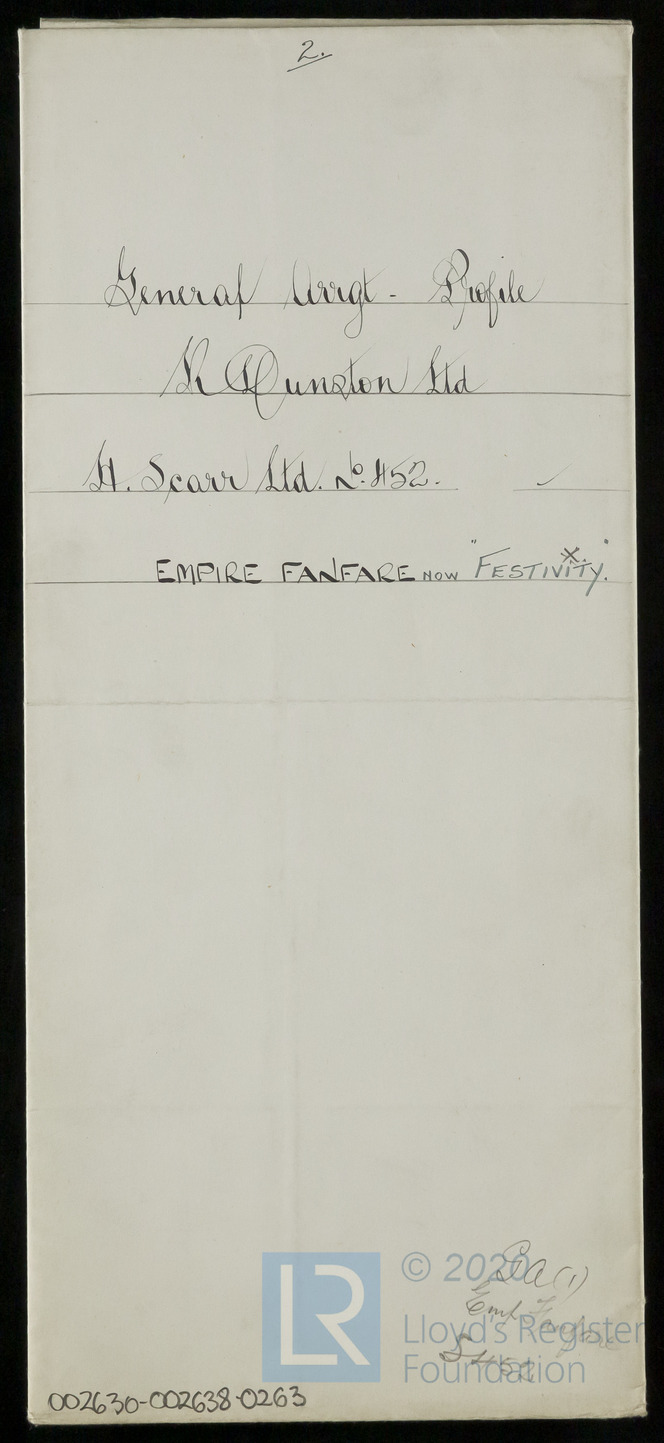 2.
General Arrgt - Profile
R Dunston Ltd
H. Scarr Ltd. No. 452.
EMPIRE FANFARE NOW "FESTIVITY."
Ga (1)
Emp Fanfare
S 452
LR
© 2020
Lloyd's Register
Foundation
002630-002638-0263